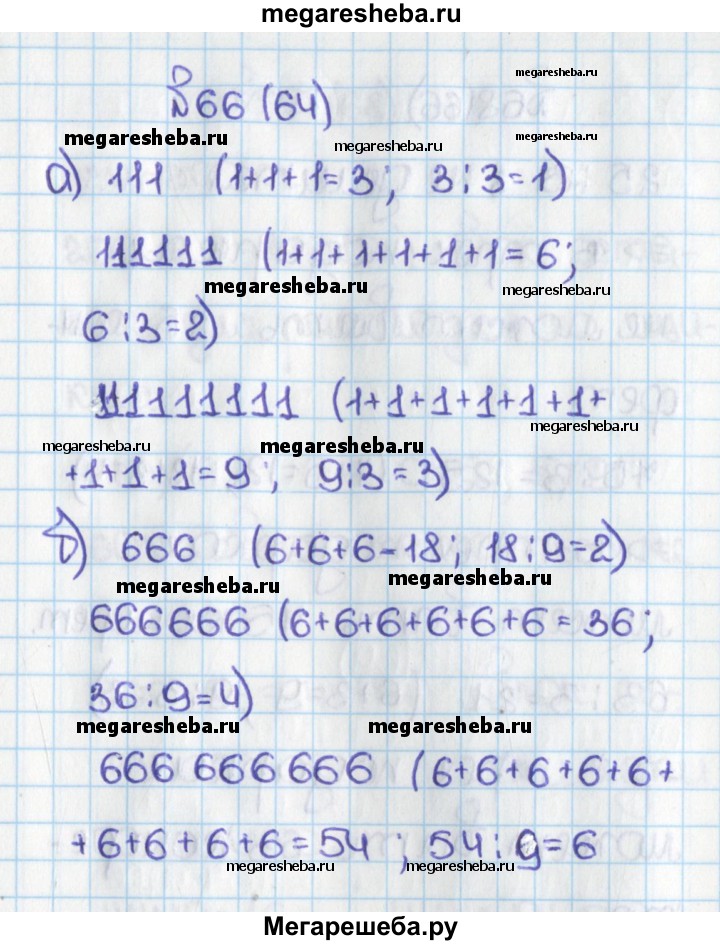 megaresheba.ru
megaresheba.ru
№66 (64)
megaresheba.ru megaresheba.ru megaresheba.ru
а) 111 (1+1+1=3; 3:3=1)
111111 (1+1+1+1+1+1=6;
megaresheba.ru megaresheba.ru
6:3=2)
111111111 (1+1+1+1+1+1+
megaresheba.ru megaresheba.ru megaresheba.ru
+1+1+1=9; 9:3=3)
б) 666 (6+6+6-18; 18:9=2)
megaresheba.ru megaresheba.ru
666666 (6+6+6+6+6+6=36;
36:9=4)
megaresheba.ru megaresheba.ru
666 666 666 (6+6+6+6+6+
+6+6+6+6=54; 54:9=6
megaresheba.ru megaresheba.ru
Мегарешеба.ру